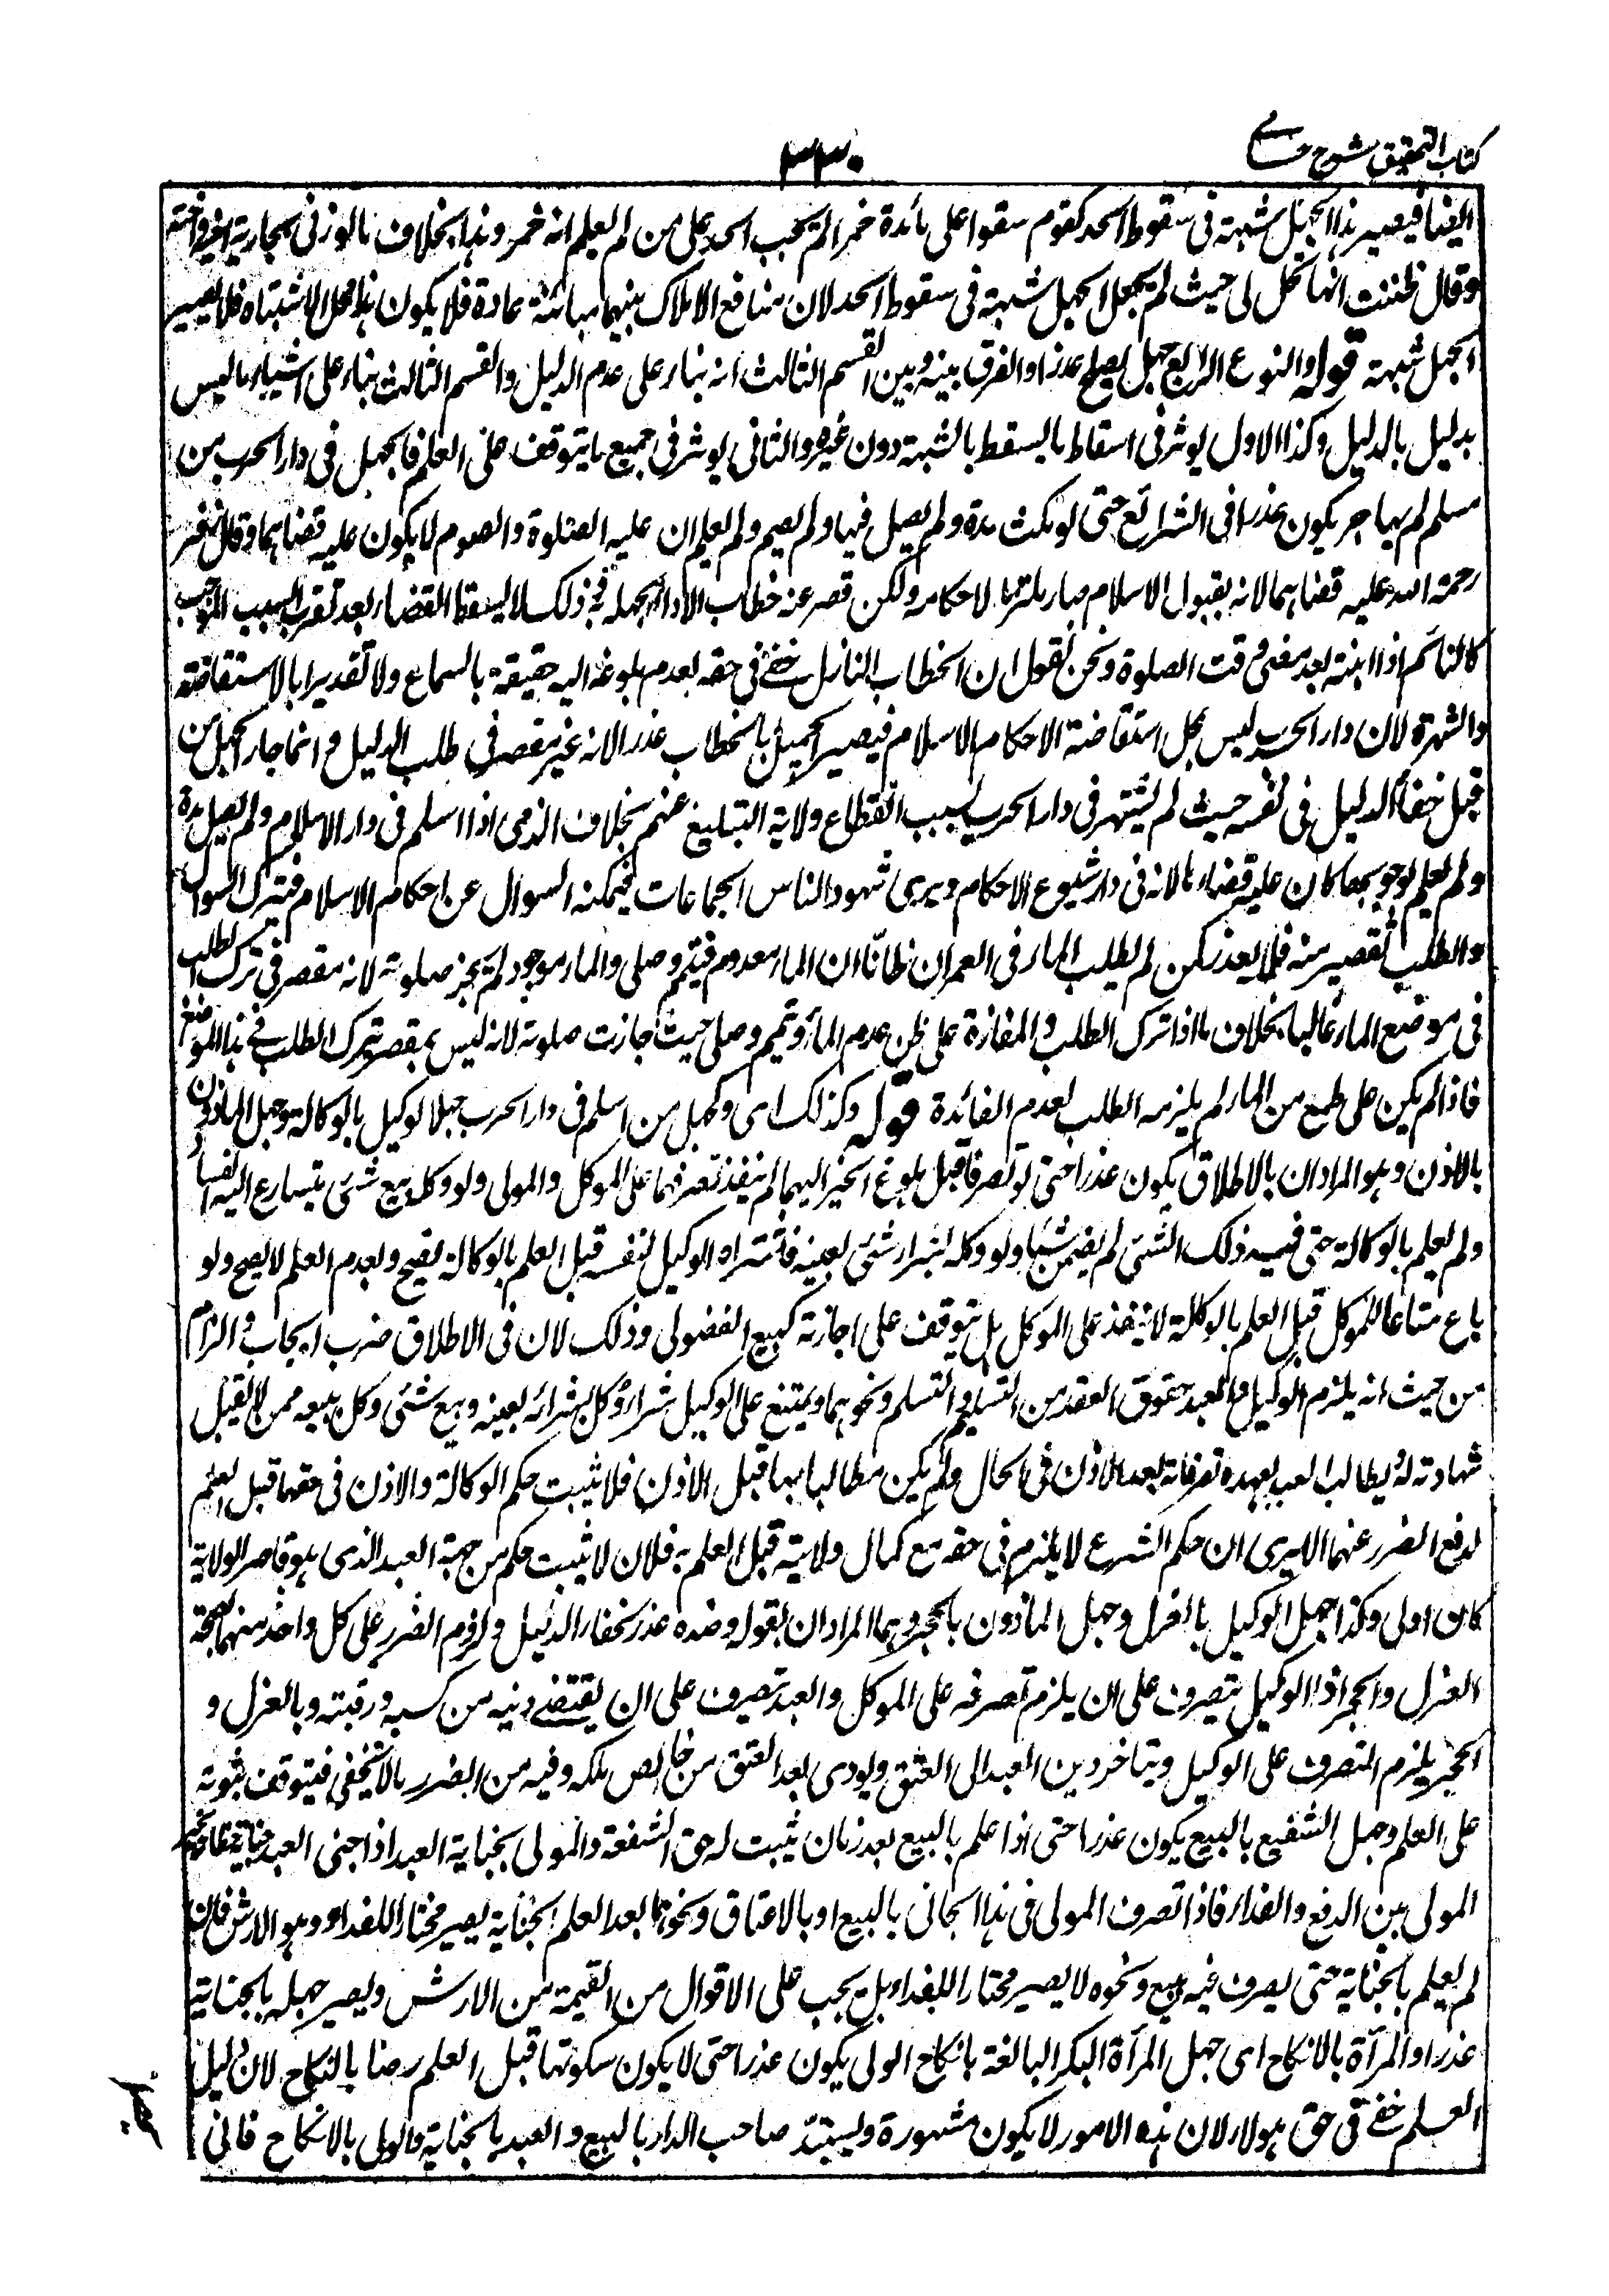 كتاب التحقيق شرح حسامى
٣٣٠
ايضا فيصير هذا الجهل شبهة فى سقوط الحد كقوم سقوا على مائدة خمرا لم يجب الحد على من لم يعلم انه خمر وهذا بخلاف ما لو زنى بجارية اخيه او اخته
وقال ظننت انها تحل لى حيث لم يجعل الجهل شبهة فى سقوط الحد لان منافع الاملاك بينهما مبائنة عادة فلا يكون هذا محل الاشتباه فلا يصير
الجهل شبهة قوله والنوع الرابع جهل يصلح عذرا والفرق بينه وبين القسم الثالث انه بناء على عدم الدليل والقسم الثالث بناء على اشتباه ما ليس
بدليل بالدليل وكذا الاول يوثر فى اسقاط ما يسقط بالشبهة دون غيره والثانى يوثر فى جميع ما يتوقف على العلم فالجهل فى دار الحرب من
مسلم لم يهاجر يكون عذرا فى الشرائع حتى لو مكث مدة ولم يصل فيها ولم يصم ولم يعلم ان عليه الصلوة والصوم لا يكون عليه قضاهما وقال زفر
رحمة الله عليه قضاهما لانه بقبول الاسلام صار ملتزما لاحكامه ولكن قصر عنه خطاب الاداء لجهله به وذلك لا يسقط القضاء بعد تقرر السبب الموجب
كالنائم اذا انتبه بعد مضى وقت الصلوة ونحن نقول ان الخطاب النازل خفى فى حقه لعدم بلوغه اليه حقيقة بالسماع ولا تقديرا بالاستفاضة
والشهرة لان دار الحرب ليس بمحل استفاضة الاحكام الاسلام فيصير الجهل بالخطاب عذرا لانه غير مقصر فى طلب الدليل وانما جاء الجهل من
قبل خفاء الدليل فى نفسه حيث لم يشتهر فى دار الحرب بسبب انقطاع ولاية التبليغ عنهم بخلاف الذمى اذا اسلم فى دار الاسلام ولم يصل مدة
ولم يعلم بوجوبهما كان عليه قضاءهما لانه فى دار شيوع الاحكام ويرى شهود الناس الجماعات فيمكنه السوال عن احكام الاسلام فترك السوال
والطلب تقصير منه فلا يعذر كمن لم يطلب الماء فى العمران ظانّا ان الماء معدوم فتيمم وصلى والماء موجود لم تجز صلوته لانه مقصر فى ترك الطلب
فى موضع الماء غالبا بخلاف ما اذا ترك الطلب فى المفازة على ظن عدم الماء وتيمم وصلى حيث جازت صلوته لانه ليس بمقصر بترك الطلب فى هذا الموضع
فاذا لم يكن على طمع من الماء لم يلزمه الطلب لعدم الفائدة قوله وكذلك اى وكجهل من اسلم فى دار الحرب جهل الوكيل بالوكالة وجهل الماذون
بالاذن وهو المرادان بالاطلاق يكون عذرا حتى لو تصرفا قبل بلوغ الخبر اليهما لم ينفذ تصرفهما على الموكل والمولى ولو وكله ببيع شئ يتسارع اليه الفساد
ولم يعلم بالوكالة حتى فسد ذلك الشئ لم يضمن شيئا ولو وكله بشراء شئ بعينه فاشتراه الوكيل لنفسه قبل العلم بالوكالة يصح وبعدم العلم لا يصح ولو
باع متاعا للموكل قبل العلم بالوكالة لا ينفذ على الموكل بل يتوقف على اجازته كبيع الفضولى وذلك لان فى الاطلاق ضرب ايجاب والزام
من حيث انه يلزم الوكيل والعبد حقوق العقد من التسليم والتسلم ونحوهما ويمتنع على الوكيل شراء ما وكل بشرائه بعينه وبيع شئ وكل ببيعه ممن لا يقبل
شهادته له ويطالب العبد بعهدة تصرفاته بعد الاذن فى الحال ولم يكن مطالبا بها قبل الاذن فلا يثبت حكم الوكالة والاذن فى حقهما قبل العلم
لدفع الضرر عنهما الا يرى ان حكم الشرع لا يلزم فى حقه مع كمال ولايته قبل العلم به فلان لا يثبت حكم من جهة العبد الذى هو قاصر الولاية
كان اولى وكذا جهل الوكيل بالعزل وجهل الماذون بالحجر وهما المرادان بقوله وضده عذر لخفاء الدليل ولزوم الضرر على كل واحد منهما بصحة
العزل والحجر اذ الوكيل يتصرف على ان يلزم تصرفه على الموكل والعبد يتصرف على ان يقتضى دينه من كسبه ورقبته وبالعزل و
الحجر يلزم التصرف على الوكيل ويتاخر دين العبد الى العتق ويودى بعد العتق من خالص ملكه وفيه من الضرر ما لا يخفى فيتوقف ثبوته
على العلم وجهل الشفيع بالبيع يكون عذرا حتى اذا علم بالبيع بعد زمان يثبت له حق الشفعة والمولى بجناية العبد اذا جنى العبد جناية خطأ يخير
المولى بين الدفع والفداء فاذا تصرف المولى فى هذا الجانى بالبيع او بالاعتاق ونحوهما بعد العلم بالجناية يصير مختارا للفداء وهو الارش فان
لم يعلم بالجناية حتى يصرف فيه ببيع ونحوه لا يصير مختارا للفداء بل يجب على الاقوال من القيمة من الارش ويصير جهله بالجناية
عذرا والمرأة بالانكاح اى جهل المرأة البكر البالغة بانكاح الولى يكون عذرا حتى لا يكون سكوتها قبل العلم رضا بالنكاح لان دليل
العلم خفى فى حق هولاء لان هذه الامور لا يكون مشهورة ويستبدّ صاحب الدار بالبيع والعبد بالجناية والولى بالانكاح فانى